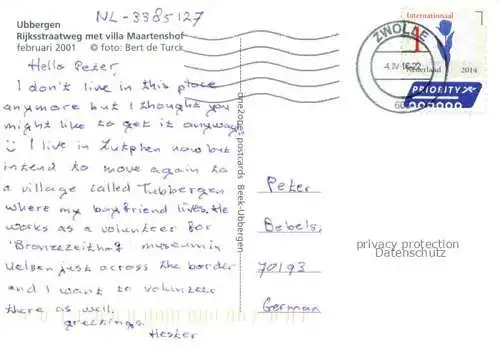 NL-3385127
Ubbergen
Rijksstraatweg met villa Maartenshof
februari 2001 © foto: Bert de Turck
Hello Peter,
I don't live in this place
anymore but I thought you
might like to get it anyway
I live in Zutphen now but
intend to move again to
a village called Tubbergen
where my boyfriend lives. He
works as a volunteer for
"Bronzezeithof" museum in
Uelsen just across the border
and I want to volunteer
there as well.
greetings,
Hester
one2one® postcards Beek-Ubbergen
ZWOLLE
4.IV.16-22
Internationaal
1
Nederland 2014
PRIORITY
Peter
Bebels,
70193
German
privacy protection
Datenschutz